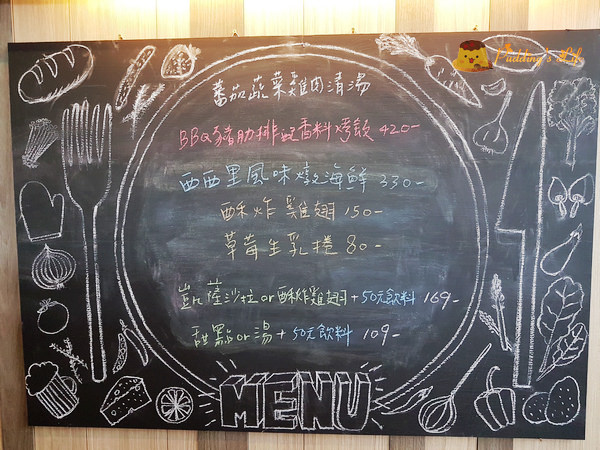 Pudding's Life
蕃茄蔬菜雞肉清湯
BBQ豬肋排配香料烤飯 420-
西西里風味燉海鮮 330-
酥炸雞翅 150-
草莓生乳捲 80-
凱薩沙拉or酥炸雞翅+50元飲料 169-
甜點or湯+50元飲料 109-
MENU